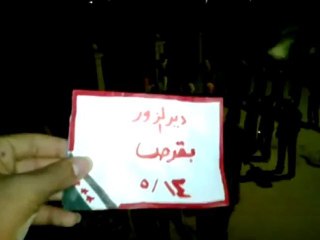 ديرالزور
بقرص
٥/١٤